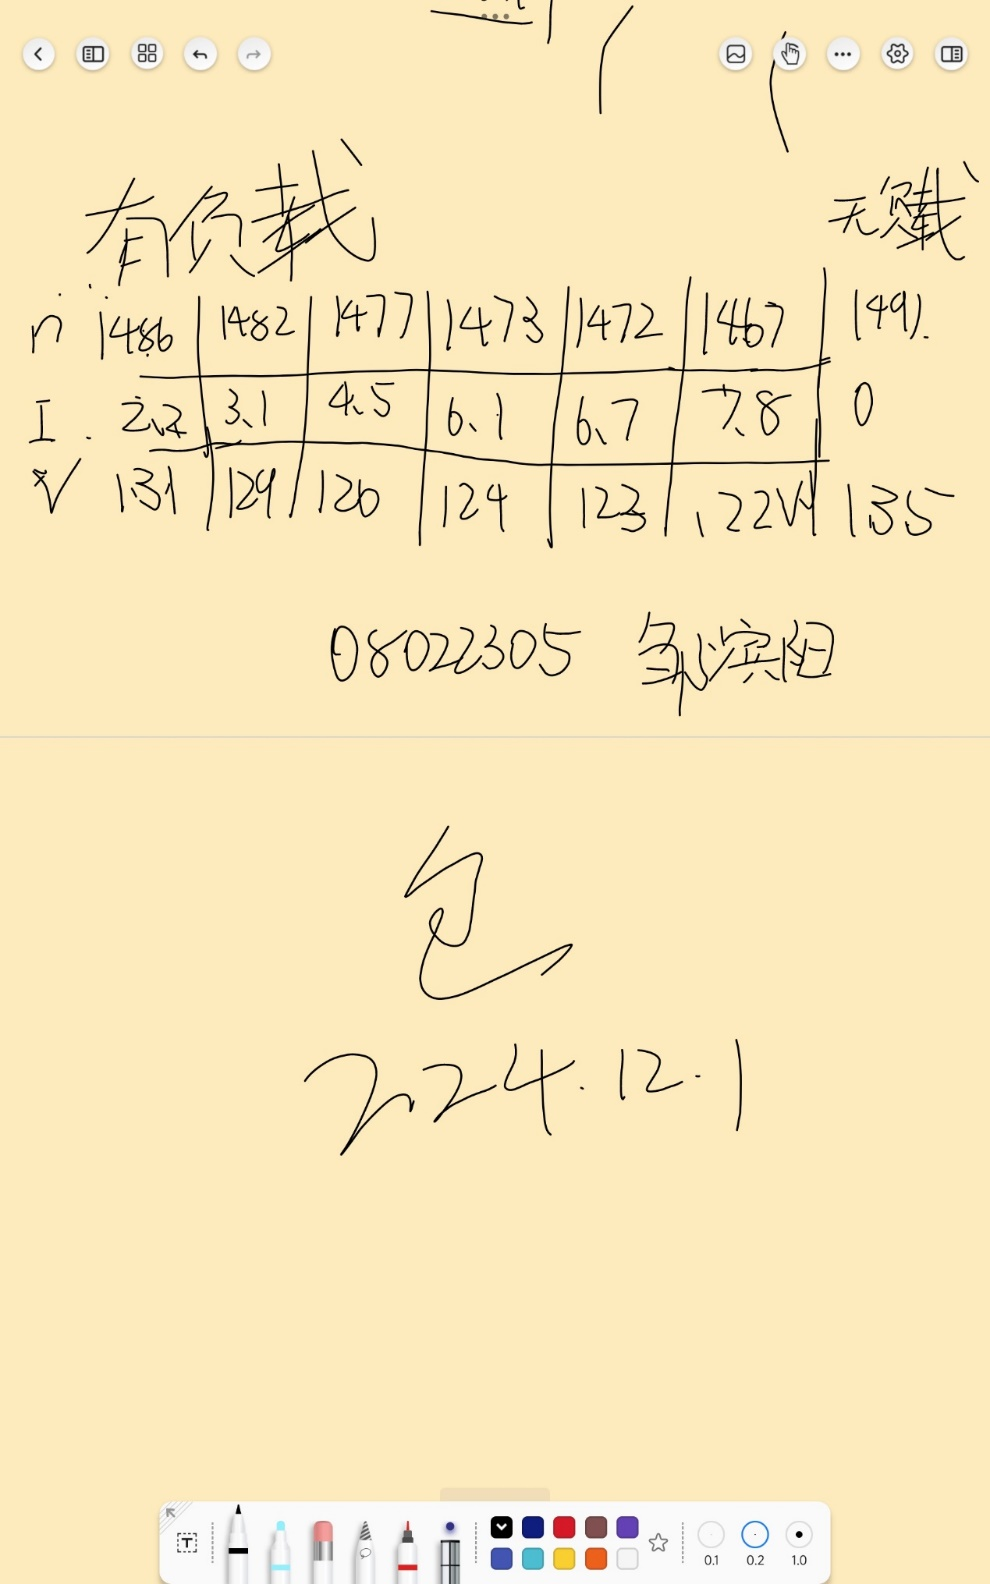 有负载 无负载
n 1486 1482 1477 1473 1472 1467 1491.
I. 2.2 3.1 4.5 6.1 6.7 7.8 0
V 131 129 126 124 123 122V 135
08022305 邹滨阳
包
2024.12.1
T 0.1 0.2 1.0